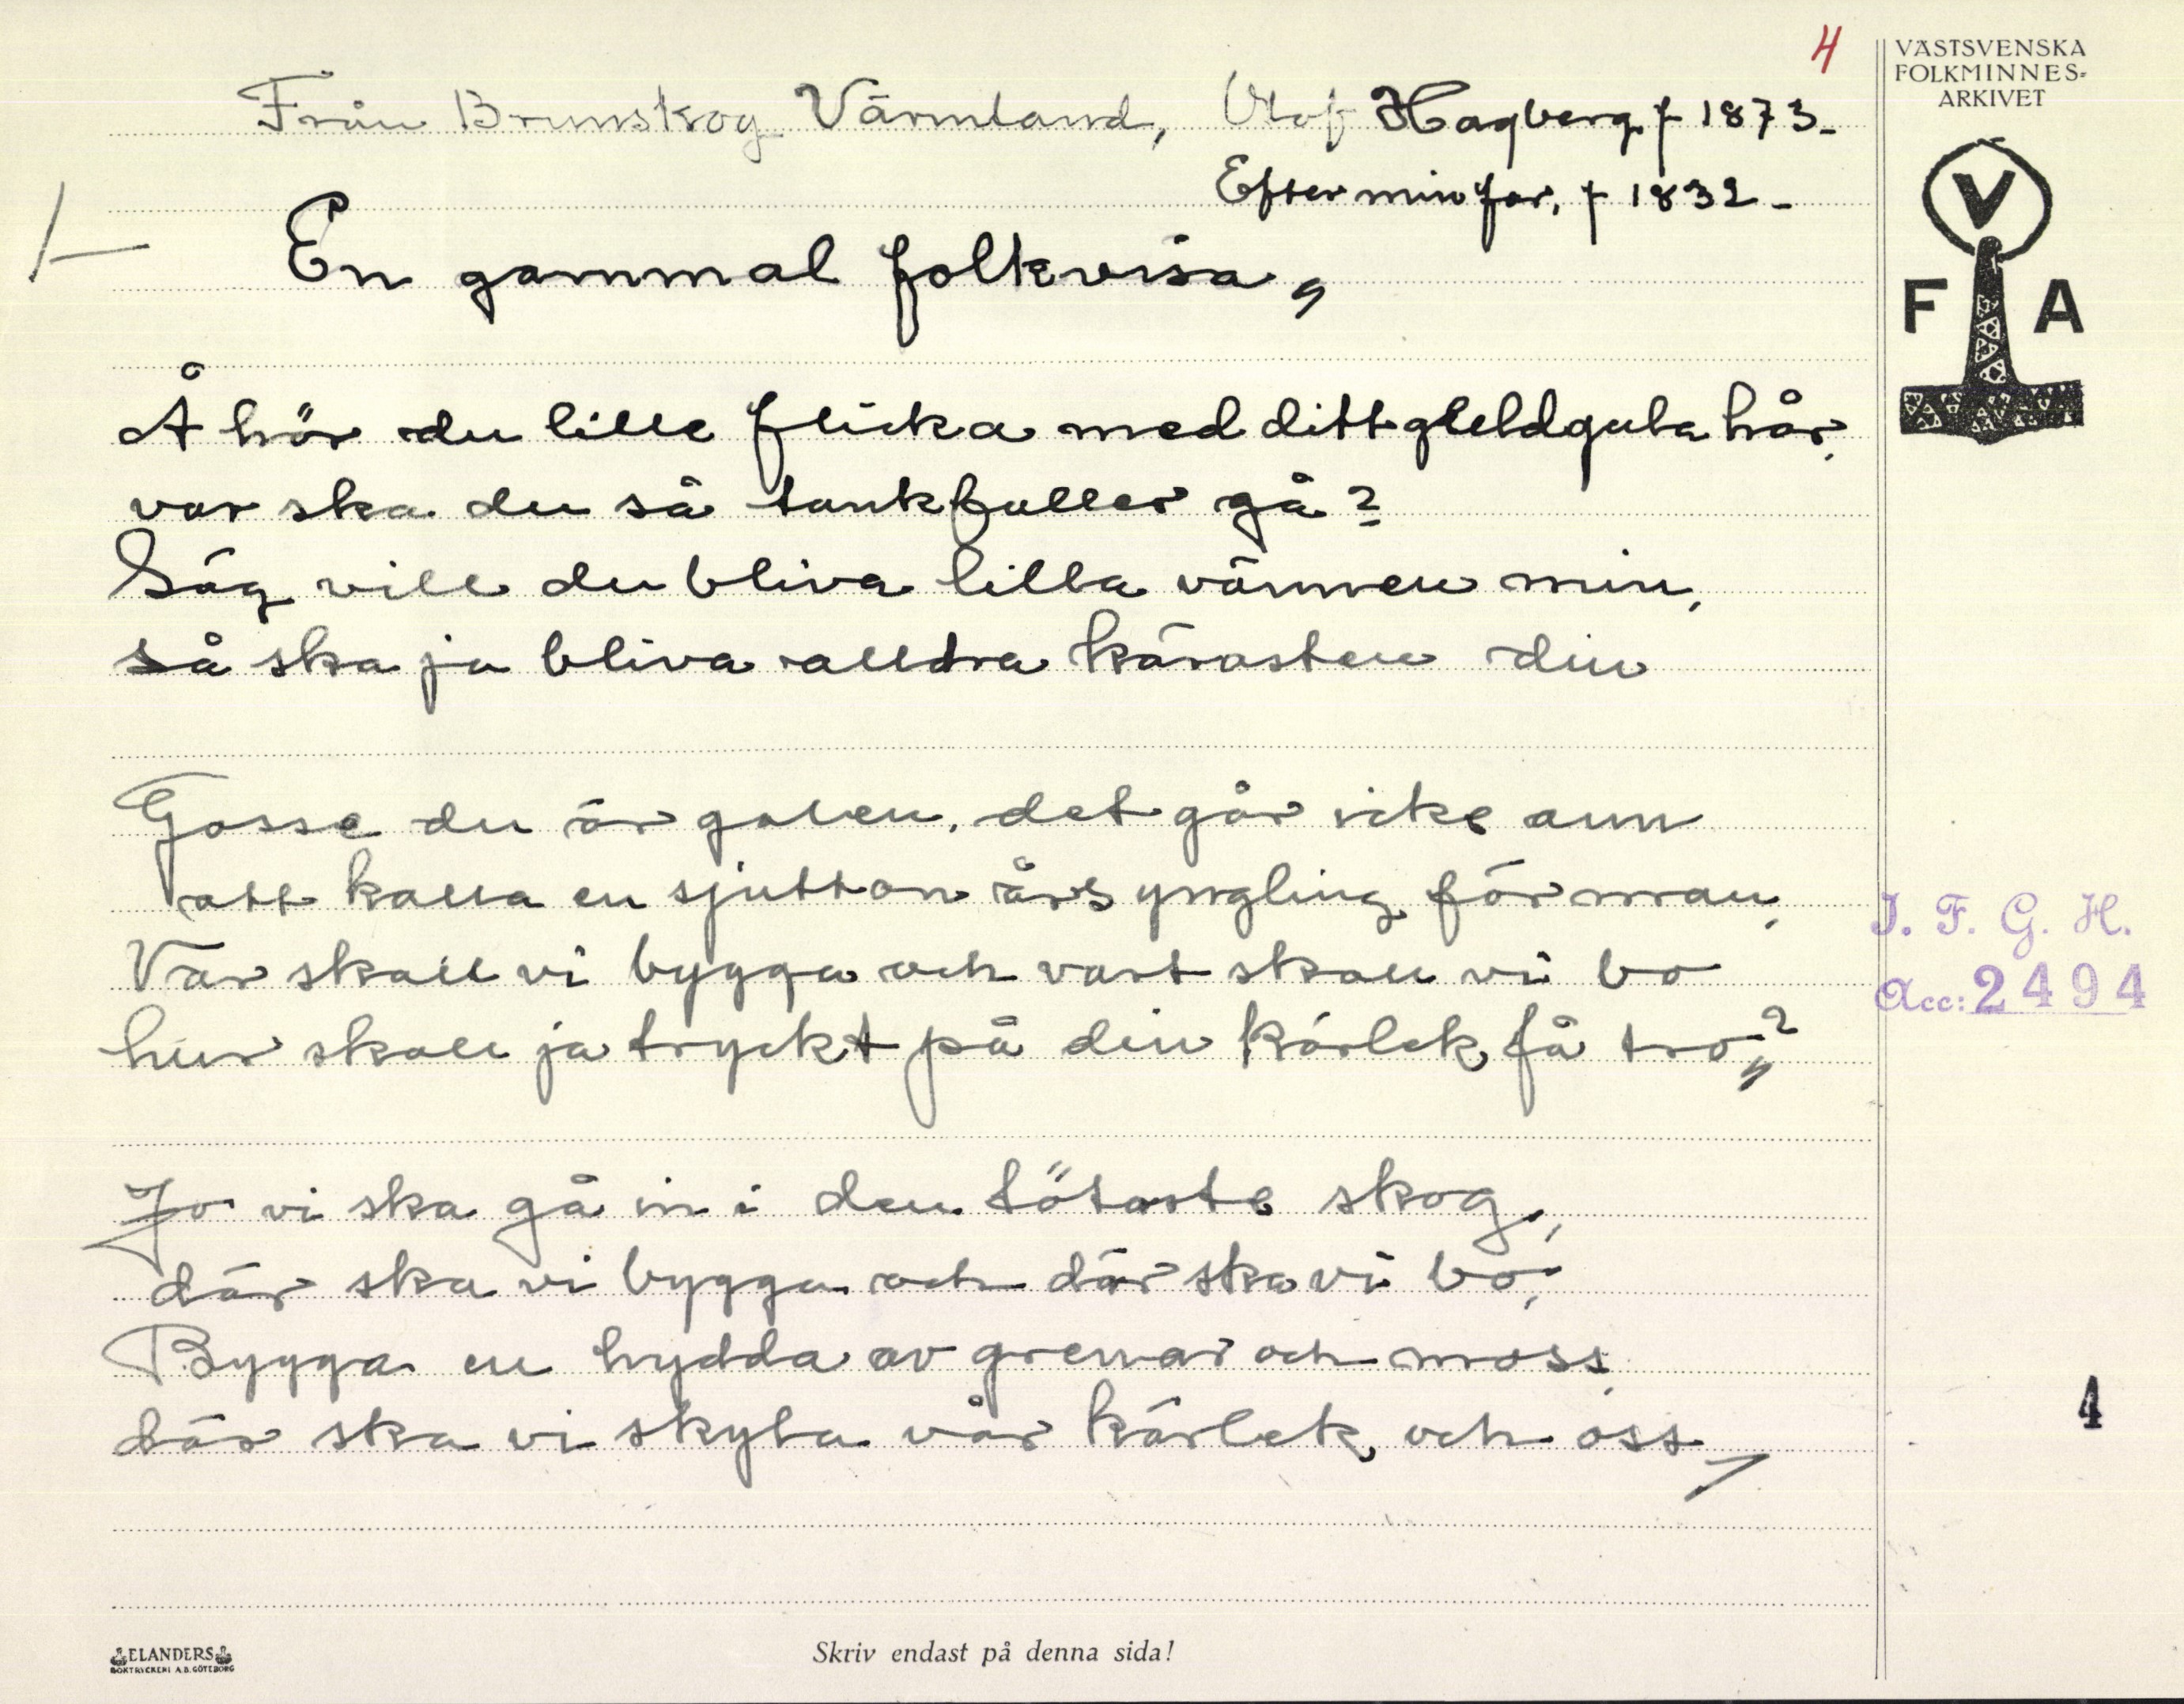 4
VÄSTSVENSKA
FOLKMINNES-
ARKIVET
Från Brunskog Värmland, Olof Hagberg f 1873-
Efter min far, f 1832-
En gammal folkvisa„
V
F A
Å hör du lille flicka med ditt guldgula hår,
var ska du så tankfuller gå?
Säg vill du bliva lilla vännen min,
så ska ja bliva alldra kärasten din
Gosse du är galen. det går icke ann
att kalla en sjutton års yngling för man,
Var skall vi bygga och vart skall vi bo
hur skall ja tryckt på din kärlek få tro„?
J. F. G. H.
Acc: 2494
Jo vi ska gå in i den tätaste skog,
där ska vi bygga och där ska vi bo,
Bygga en hydda av grenar och moss,
där ska vi skyla vår kärlek och oss,
4
ELANDERS
BOKTRYCKERI A.B. GÖTEBORG
Skriv endast på denna sida!